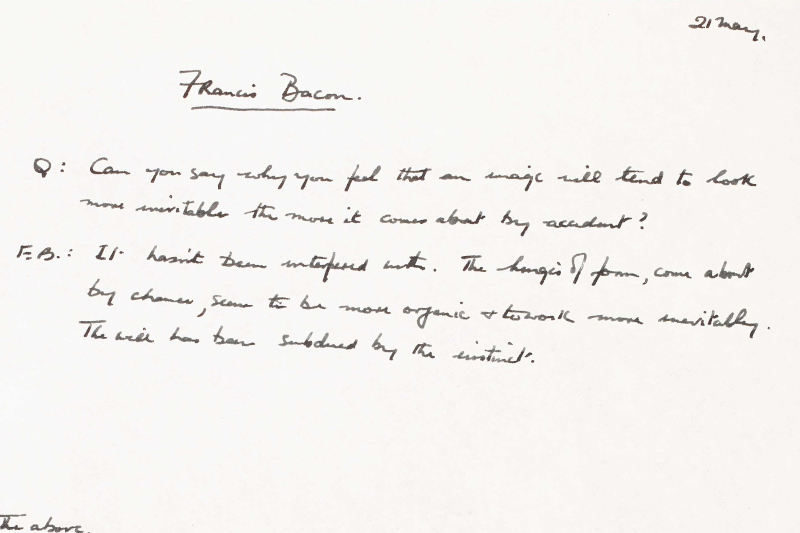 21 May.
Francis Bacon.
Q: Can you say why you feel that an image will tend to look
more inevitable the more it comes about by accident?
F.B.: It hasn't been interfered with. The hinges of form, come about
by chance, seem to be more organic & to work more inevitably.
The will has been subdued by the instinct.
The above.